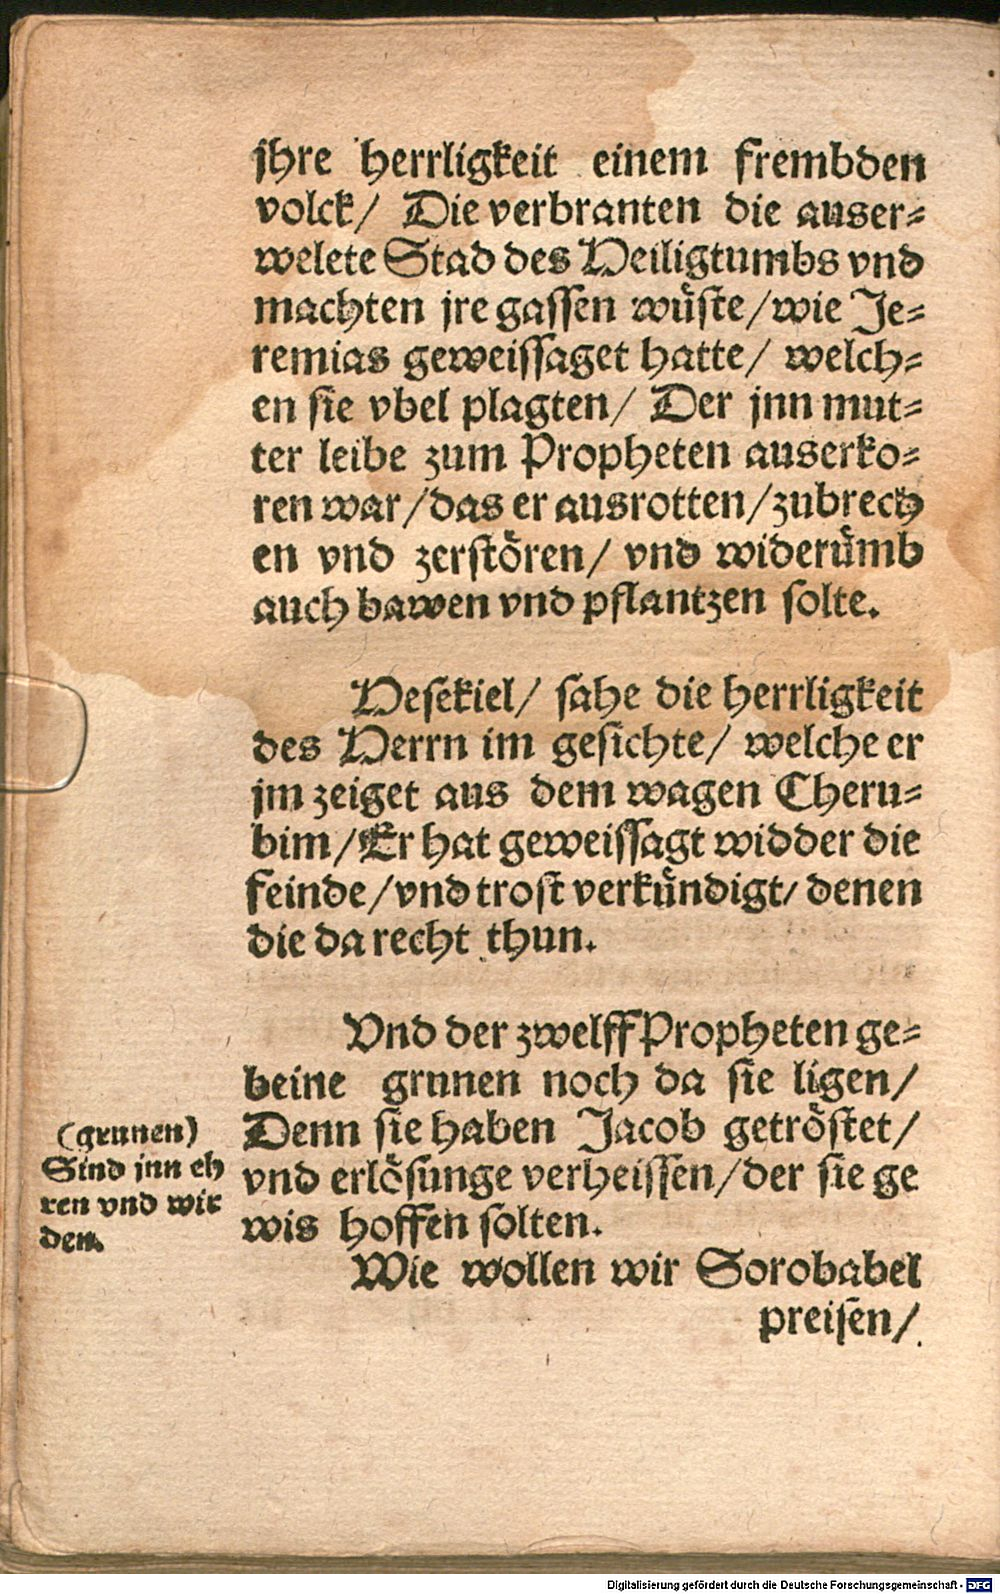 jhre herrligkeit einem frembden
volck/ Die verbranten die auser-
welete Stad des Heiligtumbs vnd
machten jre gassen wüste/wie Je-
remias geweissaget hatte/ welch-
en sie vbel plagten/ Der jnn mut-
ter leibe zum Propheten auserko-
ren war/das er ausrotten/zubrech
en vnd zerstören/ vnd widerümb
auch bawen vnd pflantzen solte.
Hesekiel/ sahe die herrligkeit
des Herrn im gesichte/ welche er
jm zeiget aus dem wagen Cheru-
bim/Er hat geweissagt widder die
feinde/vnd trost verkündigt/ denen
die da recht thun.
Vnd der zwelff Propheten ge-
beine grunen noch da sie ligen/
Denn sie haben Jacob getröstet/
vnd erlösunge verheissen/der sie ge
wis hoffen solten.
(grunen)
Sind jnn eh
ren vnd wir
den.
Wie wollen wir Sorobabel
preisen/
Digitalisierung gefördert durch die Deutsche Forschungsgemeinschaft - DFG